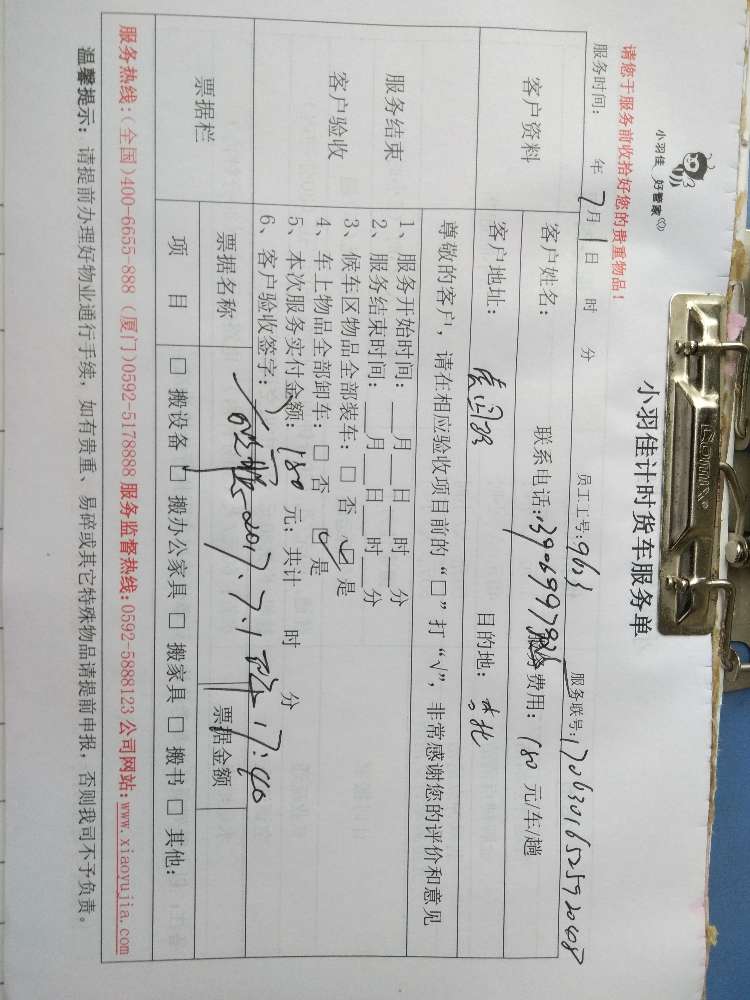 小羽佳 好管家
小羽佳计时货车服务单
请您于服务前收拾好您的贵重物品！
服务时间： 年 7月 1日 时 分 员工工号：9633 服务联号：1706301652592048
客户资料
客户姓名： 联系电话： 服务费用：180 元/车/趟
客户地址： 目的地：
服务结束
客户验收
尊敬的客户，请在相应验收项目前的“□”打“√”，非常感谢您的评价和意见
1、服务开始时间：__月__日__时__分
2、服务结束时间：__月__日__时__分
3、候车区物品全部装车：□ 否 ☑ 是
4、车上物品全部卸车：□ 否 ☑ 是
5、本次服务实付金额：180 元；共计 时 分
6、客户验收签字： 2017.7.1 17:40
票据栏
票据名称 票据金额
项 目 □ 搬设备 □ 搬办公家具 □ 搬家具 □ 搬书 □ 其他：
服务热线：(全国)400-6655-888 (厦门)0592-5178888 服务监督热线：0592-5888123 公司网站：www.xiaoyujia.com
温馨提示：请提前办理好物业通行手续，如有贵重、易碎或其它特殊物品请提前申报，否则我司不予负责。
Comix